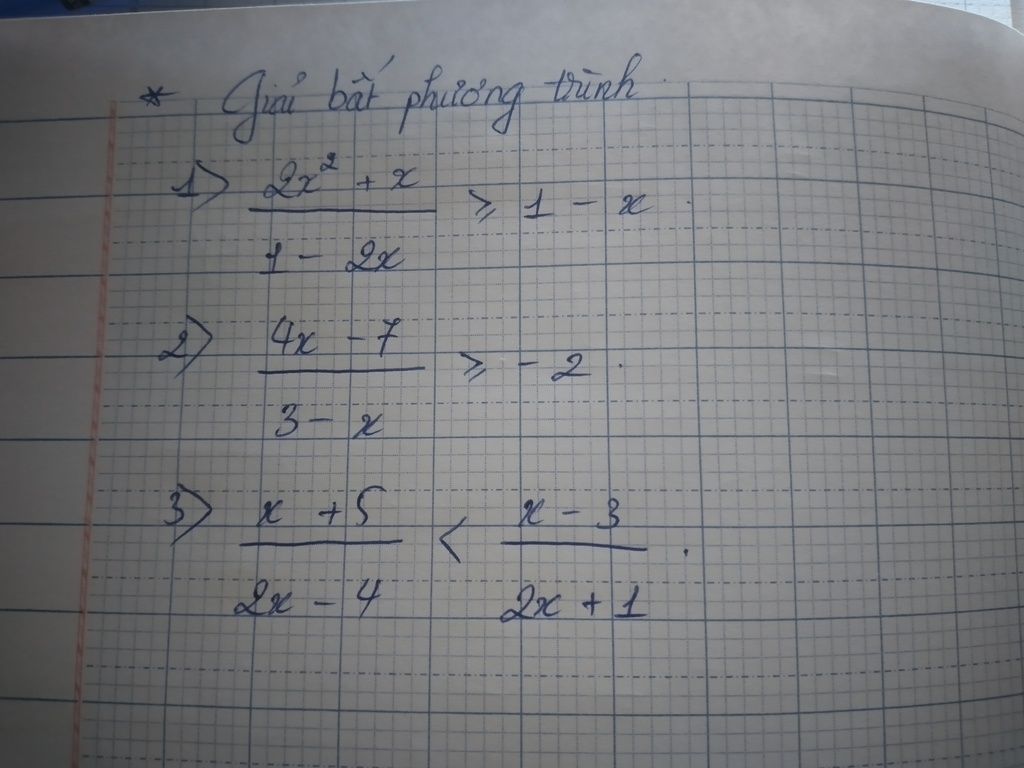 * Giải bất phương trình.
1) (2x² + x)/(1 - 2x) ⩾ 1 - x.
2) (4x - 7)/(3 - x) ⩾ -2.
3) (x + 5)/(2x - 4) < (x - 3)/(2x + 1).